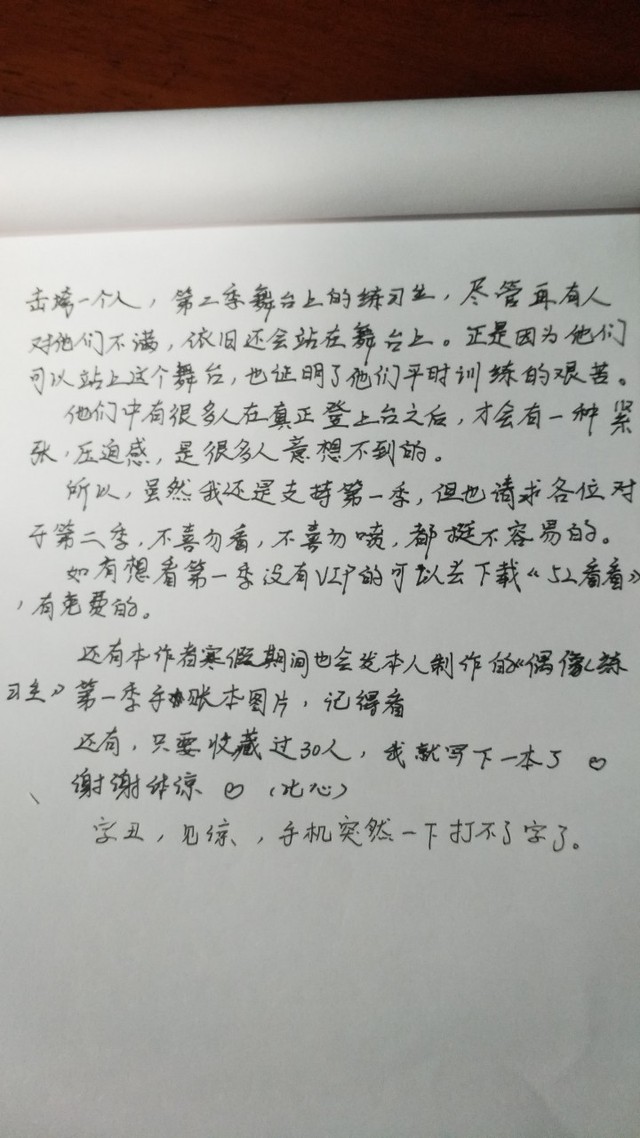 击垮一个人，第二季舞台上的练习生，尽管再有人
对他们不满，依旧还会站在舞台上。正是因为他们
可以站上这个舞台，也证明了他们平时训练的艰苦。
他们中有很多人在真正登上台之后，才会有一种紧
张，压迫感，是很多人意想不到的。
所以，虽然我还是支持第一季，但也请求各位对
于第二季，不喜勿看，不喜勿喷，都挺不容易的。
如有想看第一季没有VIP的可以去下载《52看看》
，有免费的。
还有本作者寒假期间也会发本人制作的《偶像练
习生》第一季手账本图片，记得看
还有，只要收藏过30人，我就写下一本了♡
谢谢体谅♡（比心）
字丑，见谅，手机突然一下打不了字了。